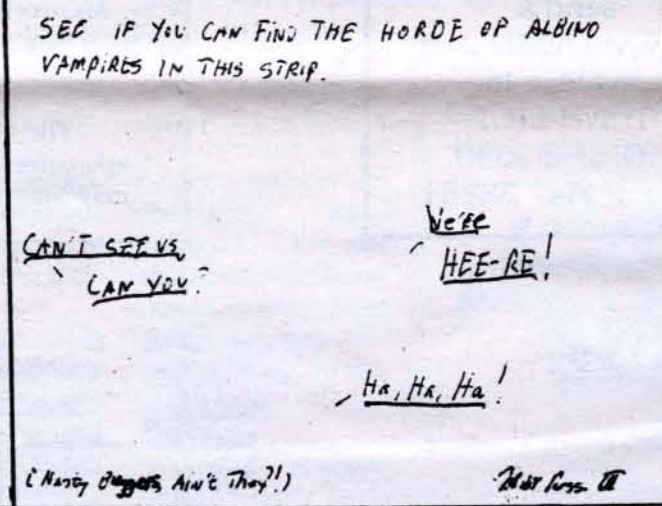 SEE IF YOU CAN FIND THE HORDE OF ALBINO
VAMPIRES IN THIS STRIP.
CAN'T SEE US
CAN YOU?
We'RE
HEE-RE!
Ha, Ha, Ha!
(Nasty Buggers Ain't They?!)